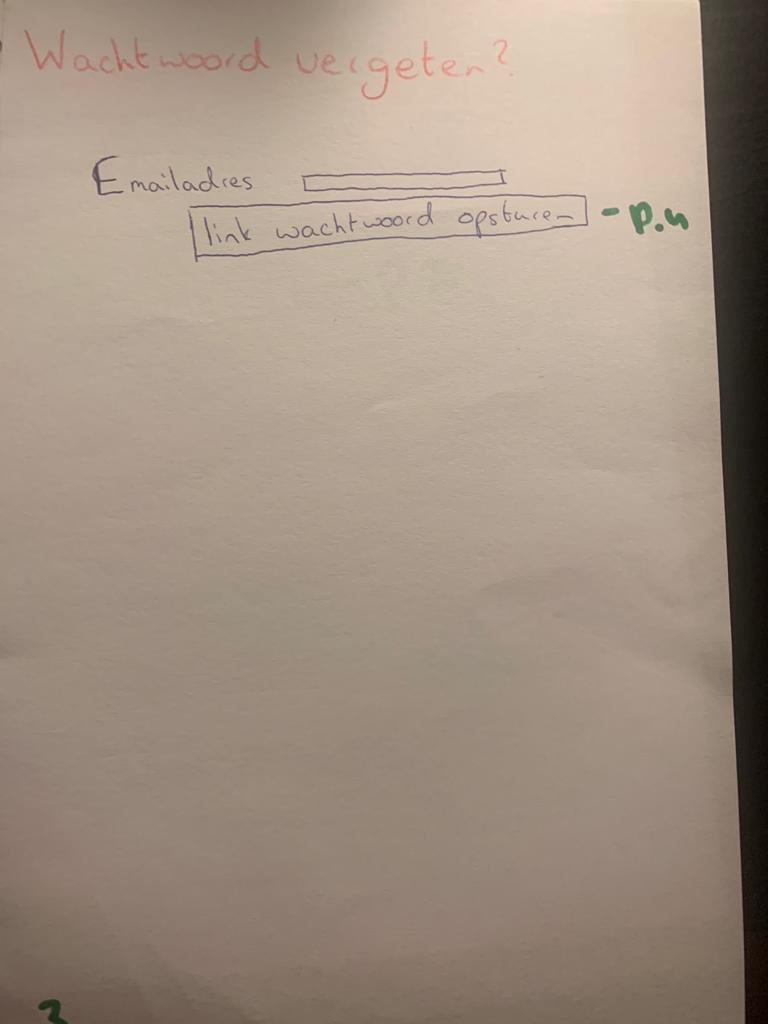 Wachtwoord vergeten?
Emailadres
link wachtwoord opsturen - p.4
3